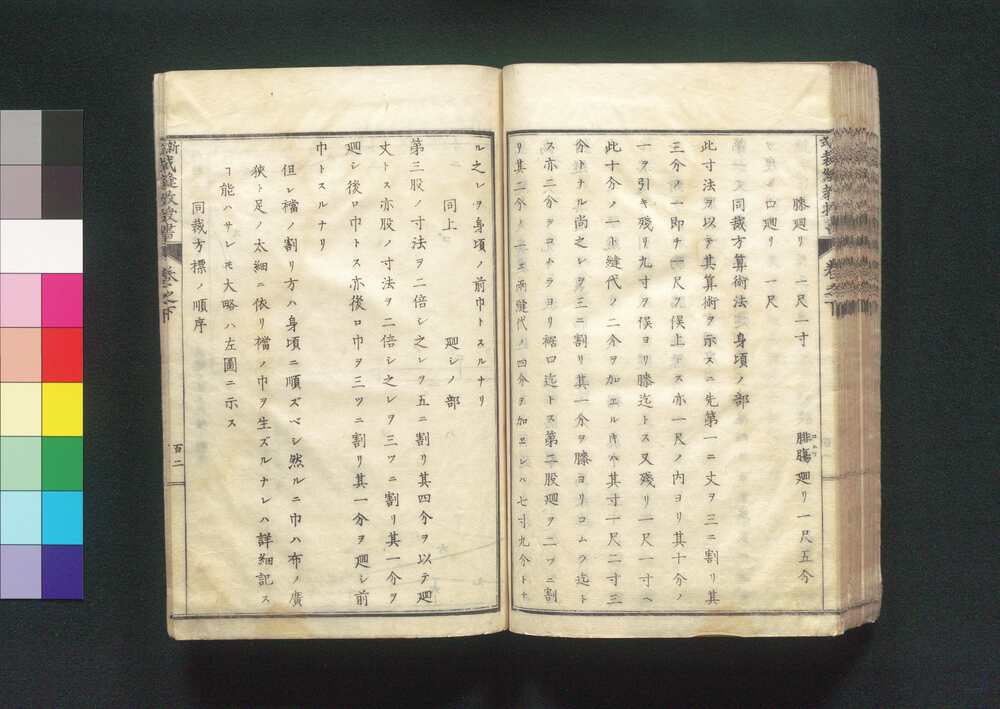 膝廻リ 二尺二寸 腓膓廻リ一尺五分
コムラ
ヲ廻シ口廻リ 一尺
同裁方算術法 身頃ノ部
此寸法ヲ以テ其算術ヲ示スニ先第一ニ丈ヲ三ニ割リ其
三分ノ一即チ一尺ヲ俣上トス亦一尺ノ内ヨリ其十分ノ
一ヲ引キ殘リ九寸ヲ俣ヨリ膝迄トス又殘リ一尺一寸ヘ
此十分ノ一ト縫代ノ二分ヲ加エル時ハ其寸一尺二寸三
分トナル尚之レヲ三ニ割リ其一分ヲ膝ヨリコムラ迄ト
ス亦二分ヲコムラヨリ裾口迄トス第二股廻ヲ二ツニ割
リ其二分ノ一エ兩縫代ノ四分ヲ加エレハ七寸九分トナ
ル之レヲ身頃ノ前巾トスルナリ
同上 廻シノ部
第三股ノ寸法ヲ二倍シ之レヲ五ニ割リ其四分ヲ以テ廻
丈トス亦股ノ寸法ヲ二倍シ之レヲ三ツニ割リ其一分ヲ
廻シ後口巾トス亦後口巾ヲ三ツニ割リ其一分ヲ廻シ前
巾トスルナリ
但シ襠ノ割リ方ハ身頃ニ順ズベシ然ルニ巾ハ布ノ廣
狹ト足ノ太細ニ依リ襠ノ巾ヲ生ズルナレハ詳細記ス
ヿ能ハサレ𪜈大略ハ左圖ニ示ス
同裁方標ノ順序
卷之下
百二